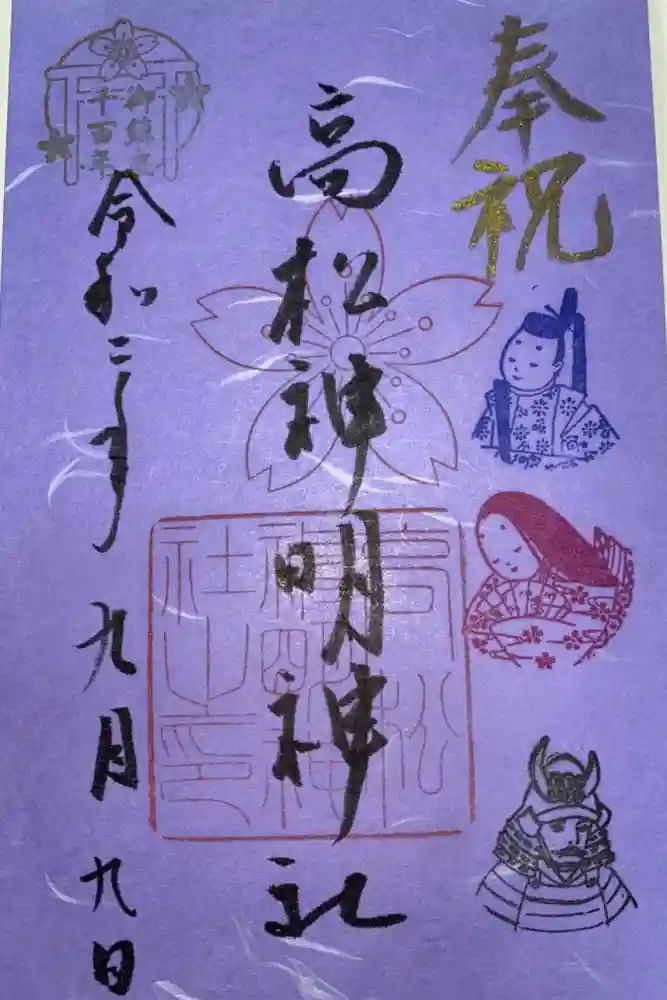 奉祝
高松神明神社
高松
神明神
社之印
御鎮座
千百年
令和二年
九月
九日